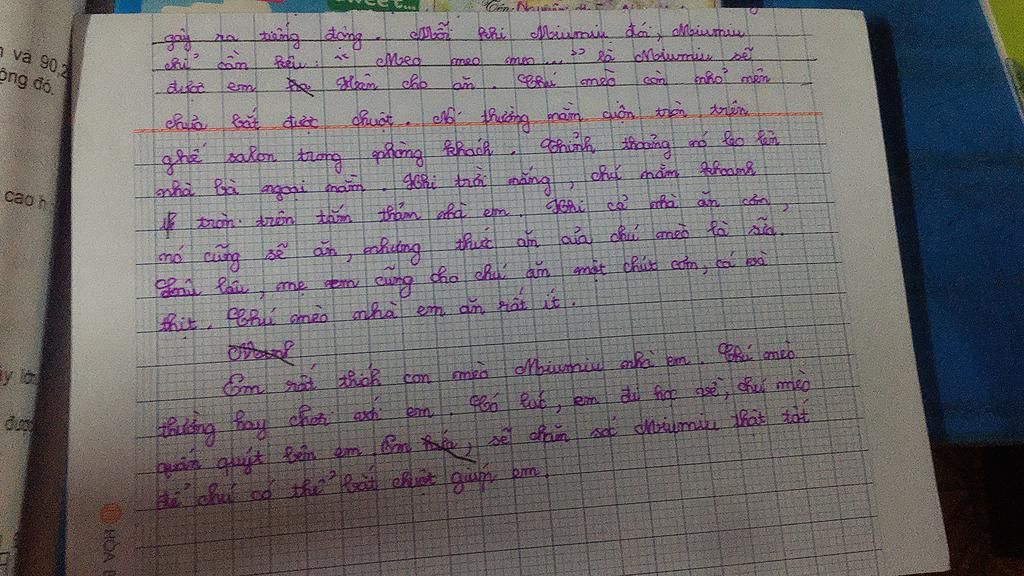 Sweet...
Tên: Nguyễn
n và 90,2
ộng đó.
cao h
ẩy lớn
đượ
HÒA
gây ra tiếng động. Mỗi khi Miumiu đói, Miumiu
chỉ cần kêu: "Meo meo meo..." là Miumiu sẽ
được em cho ăn. Chú mèo còn nhỏ nên
chưa bắt được chuột. Nó thường nằm cuộn tròn trên
ghế salon trong phòng khách. Thỉnh thoảng nó leo lên
nhà bà ngoại nằm. Khi trời nắng, chú nằm khoanh
tròn trên tấm thảm nhà em. Khi cả nhà ăn cơm,
nó cũng sẽ ăn, nhưng thức ăn của chú mèo là sữa.
Lâu lâu, mẹ em cũng cho chú ăn một chút cơm, cá và
thịt. Chú mèo nhà em ăn rất ít.
Em rất thích con mèo Miumiu nhà em. Chú mèo
thường hay chơi với em. Có lúc, em đi học về, chú mèo
quấn quýt bên em. Em sẽ chăm sóc Miumiu thật tốt
để chú có thể bắt chuột giúp em.